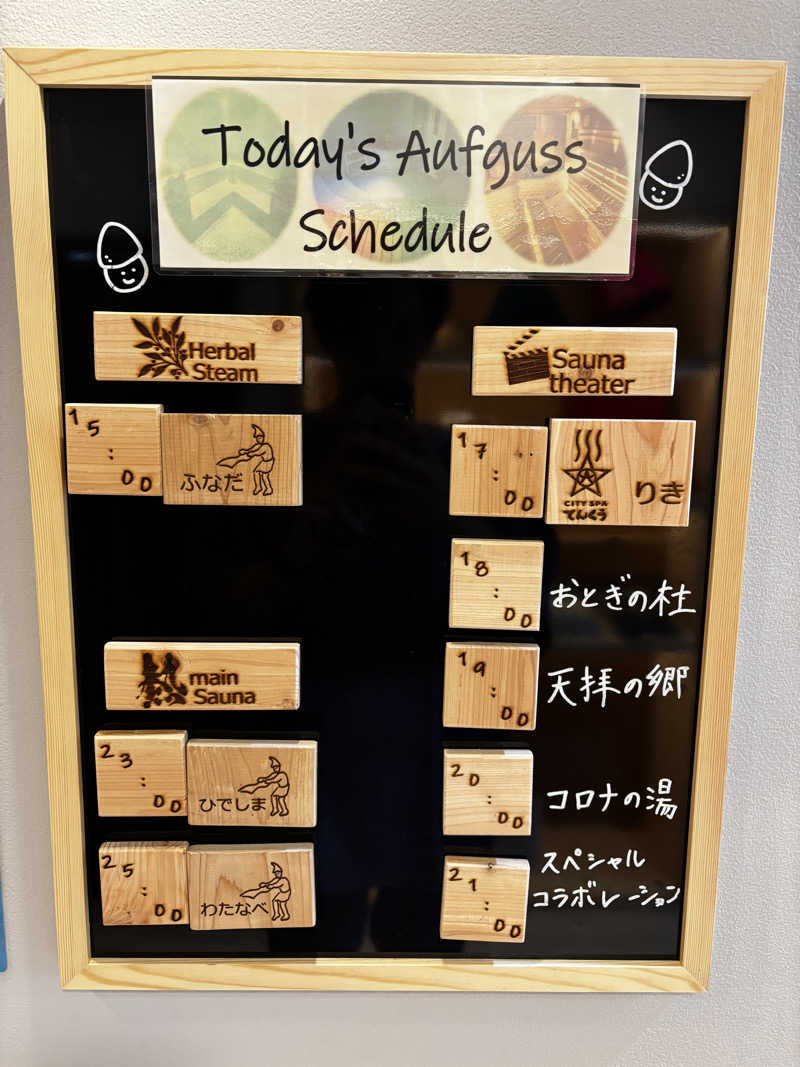 Today's Aufguss
Schedule
Herbal
Steam
15:00
ふなだ
main
Sauna
23:00
ひでしま
25:00
わたなべ
Sauna
theater
17:00
CITY SPA
てんくう
りき
18:00
おとぎの杜
19:00
天拝の郷
20:00
コロナの湯
21:00
スペシャル
コラボレーション